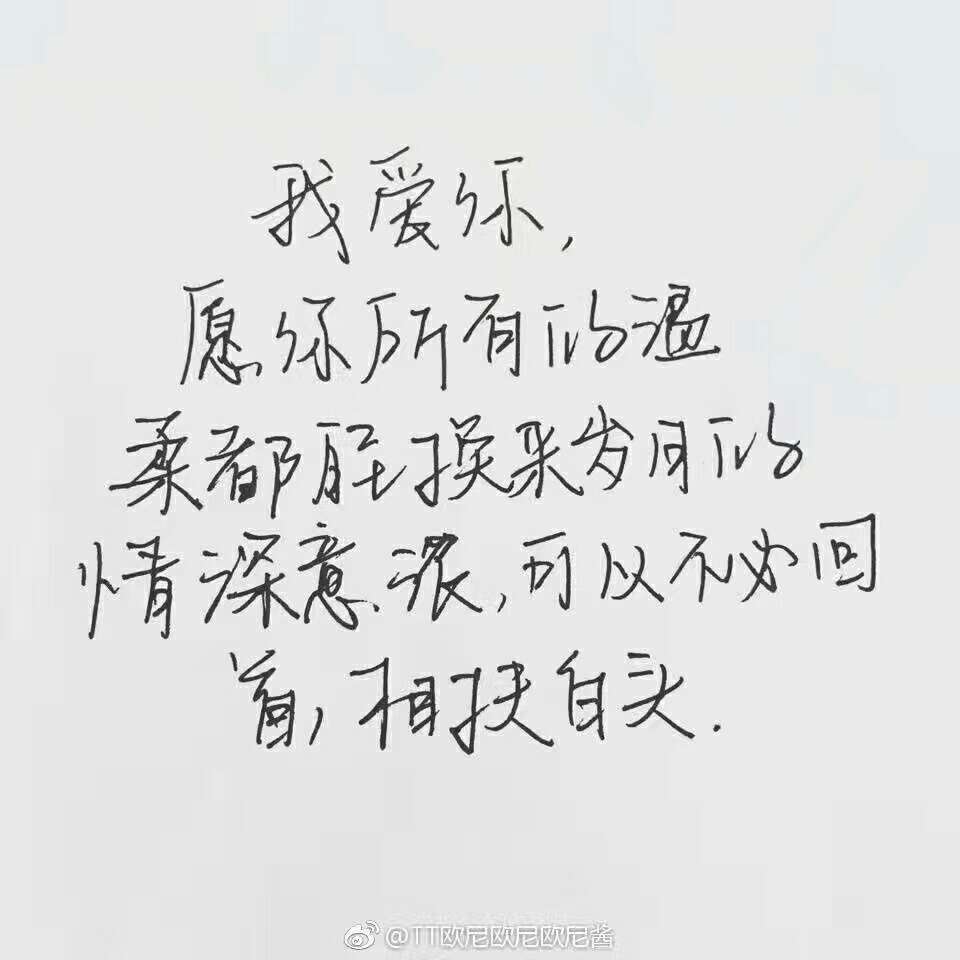 我爱你,
愿你所有的温
柔都能换来岁月的
情深意浓,可以不必回
首,相扶白头.
@TT欧尼欧尼欧尼酱